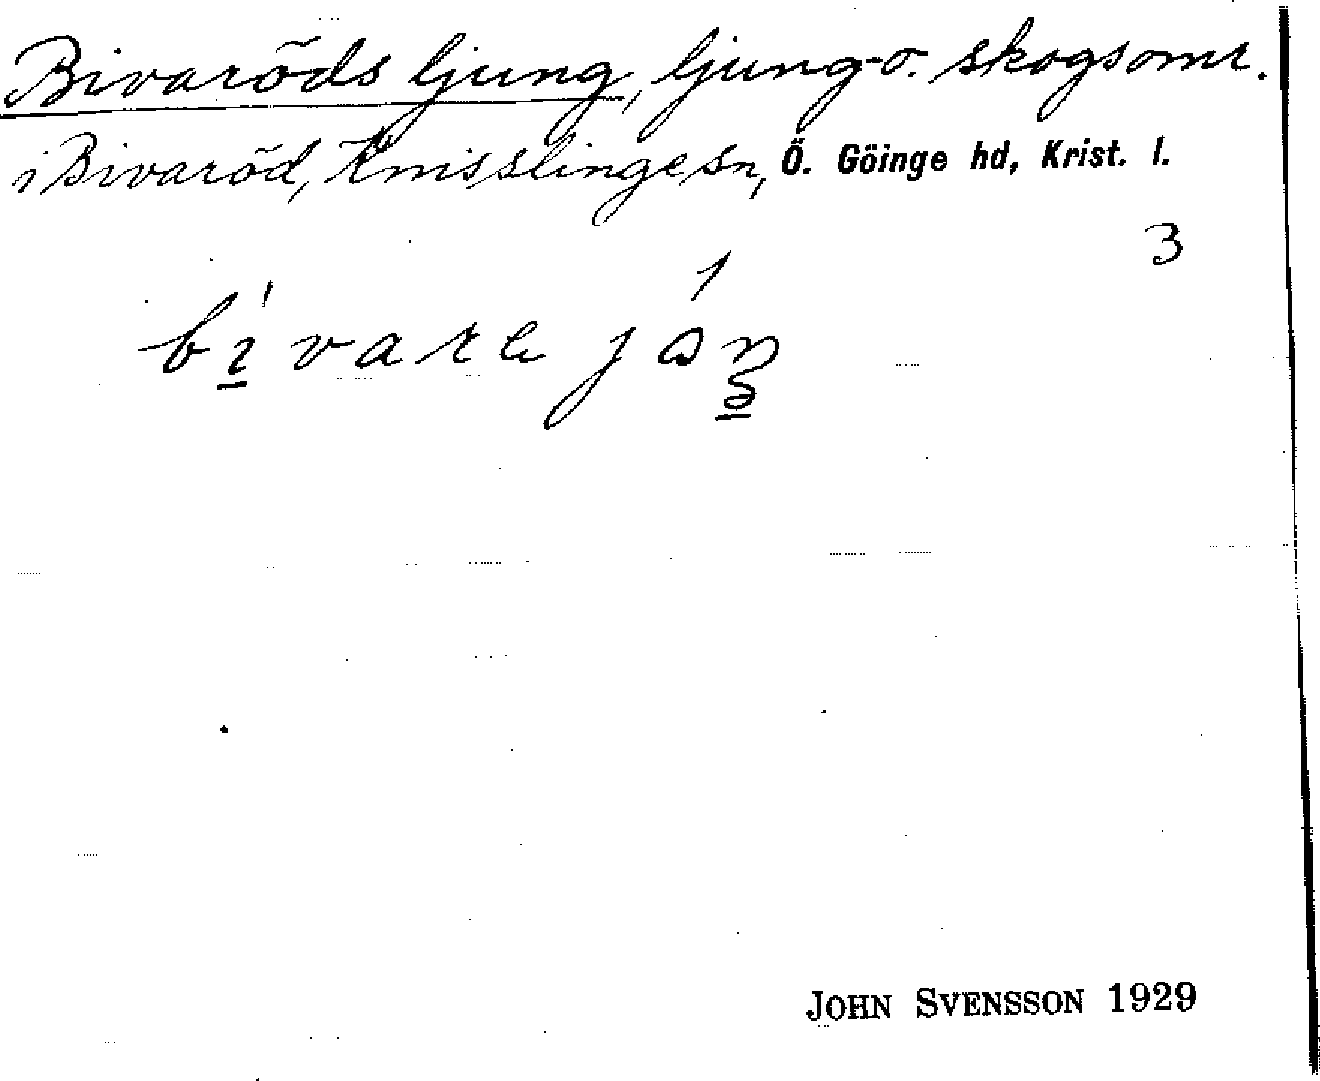 Bivaröds ljung, ljung- o. skogsomr.
i Bivaröd, Knisslinge sn, Ö. Göinge hd, Krist. l.
3
JOHN SVENSSON 1929